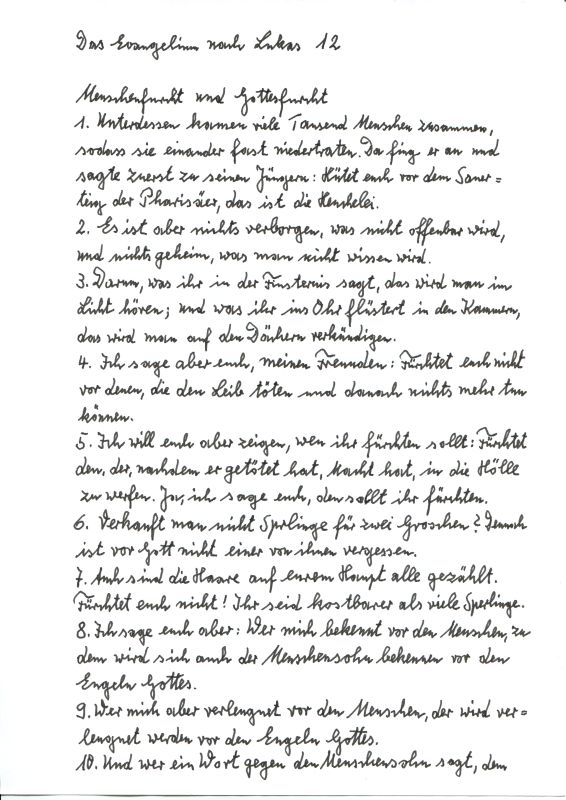 Das Evangelium nach Lukas 12
Menschenfurcht und Gottesfurcht
1. Unterdessen kamen viele Tausend Menschen zusammen,
sodass sie einander fast niedertraten. Da fing er an und
sagte zuerst zu seinen Jüngern: Hütet euch vor dem Sauer=
teig der Pharisäer, das ist die Heuchelei.
2. Es ist aber nichts verborgen, was nicht offenbar wird,
und nichts geheim, was man nicht wissen wird.
3. Darum, was ihr in der Finsternis sagt, das wird man im
Licht hören; und was ihr ins Ohr flüstert in den Kammern,
das wird man auf den Dächern verkündigen.
4. Ich sage aber euch, meinen Freunden: Fürchtet euch nicht
vor denen, die den Leib töten und danach nichts mehr tun
können.
5. Ich will euch aber zeigen, wen ihr fürchten sollt: Fürchtet
den, der, nachdem er getötet hat, Macht hat, in die Hölle
zu werfen. Ja, ich sage euch, den sollt ihr fürchten.
6. Verkauft man nicht Sperlinge für zwei Groschen? Dennoch
ist vor Gott nicht einer von ihnen vergessen.
7. Auch sind die Haare auf eurem Haupt alle gezählt.
Fürchtet euch nicht! Ihr seid kostbarer als viele Sperlinge.
8. Ich sage euch aber: Wer mich bekennt vor den Menschen, zu
dem wird sich auch der Menschensohn bekennen vor den
Engeln Gottes.
9. Wer mich aber verleugnet vor den Menschen, der wird ver=
leugnet werden vor den Engeln Gottes.
10. Und wer ein Wort gegen den Menschensohn sagt, dem